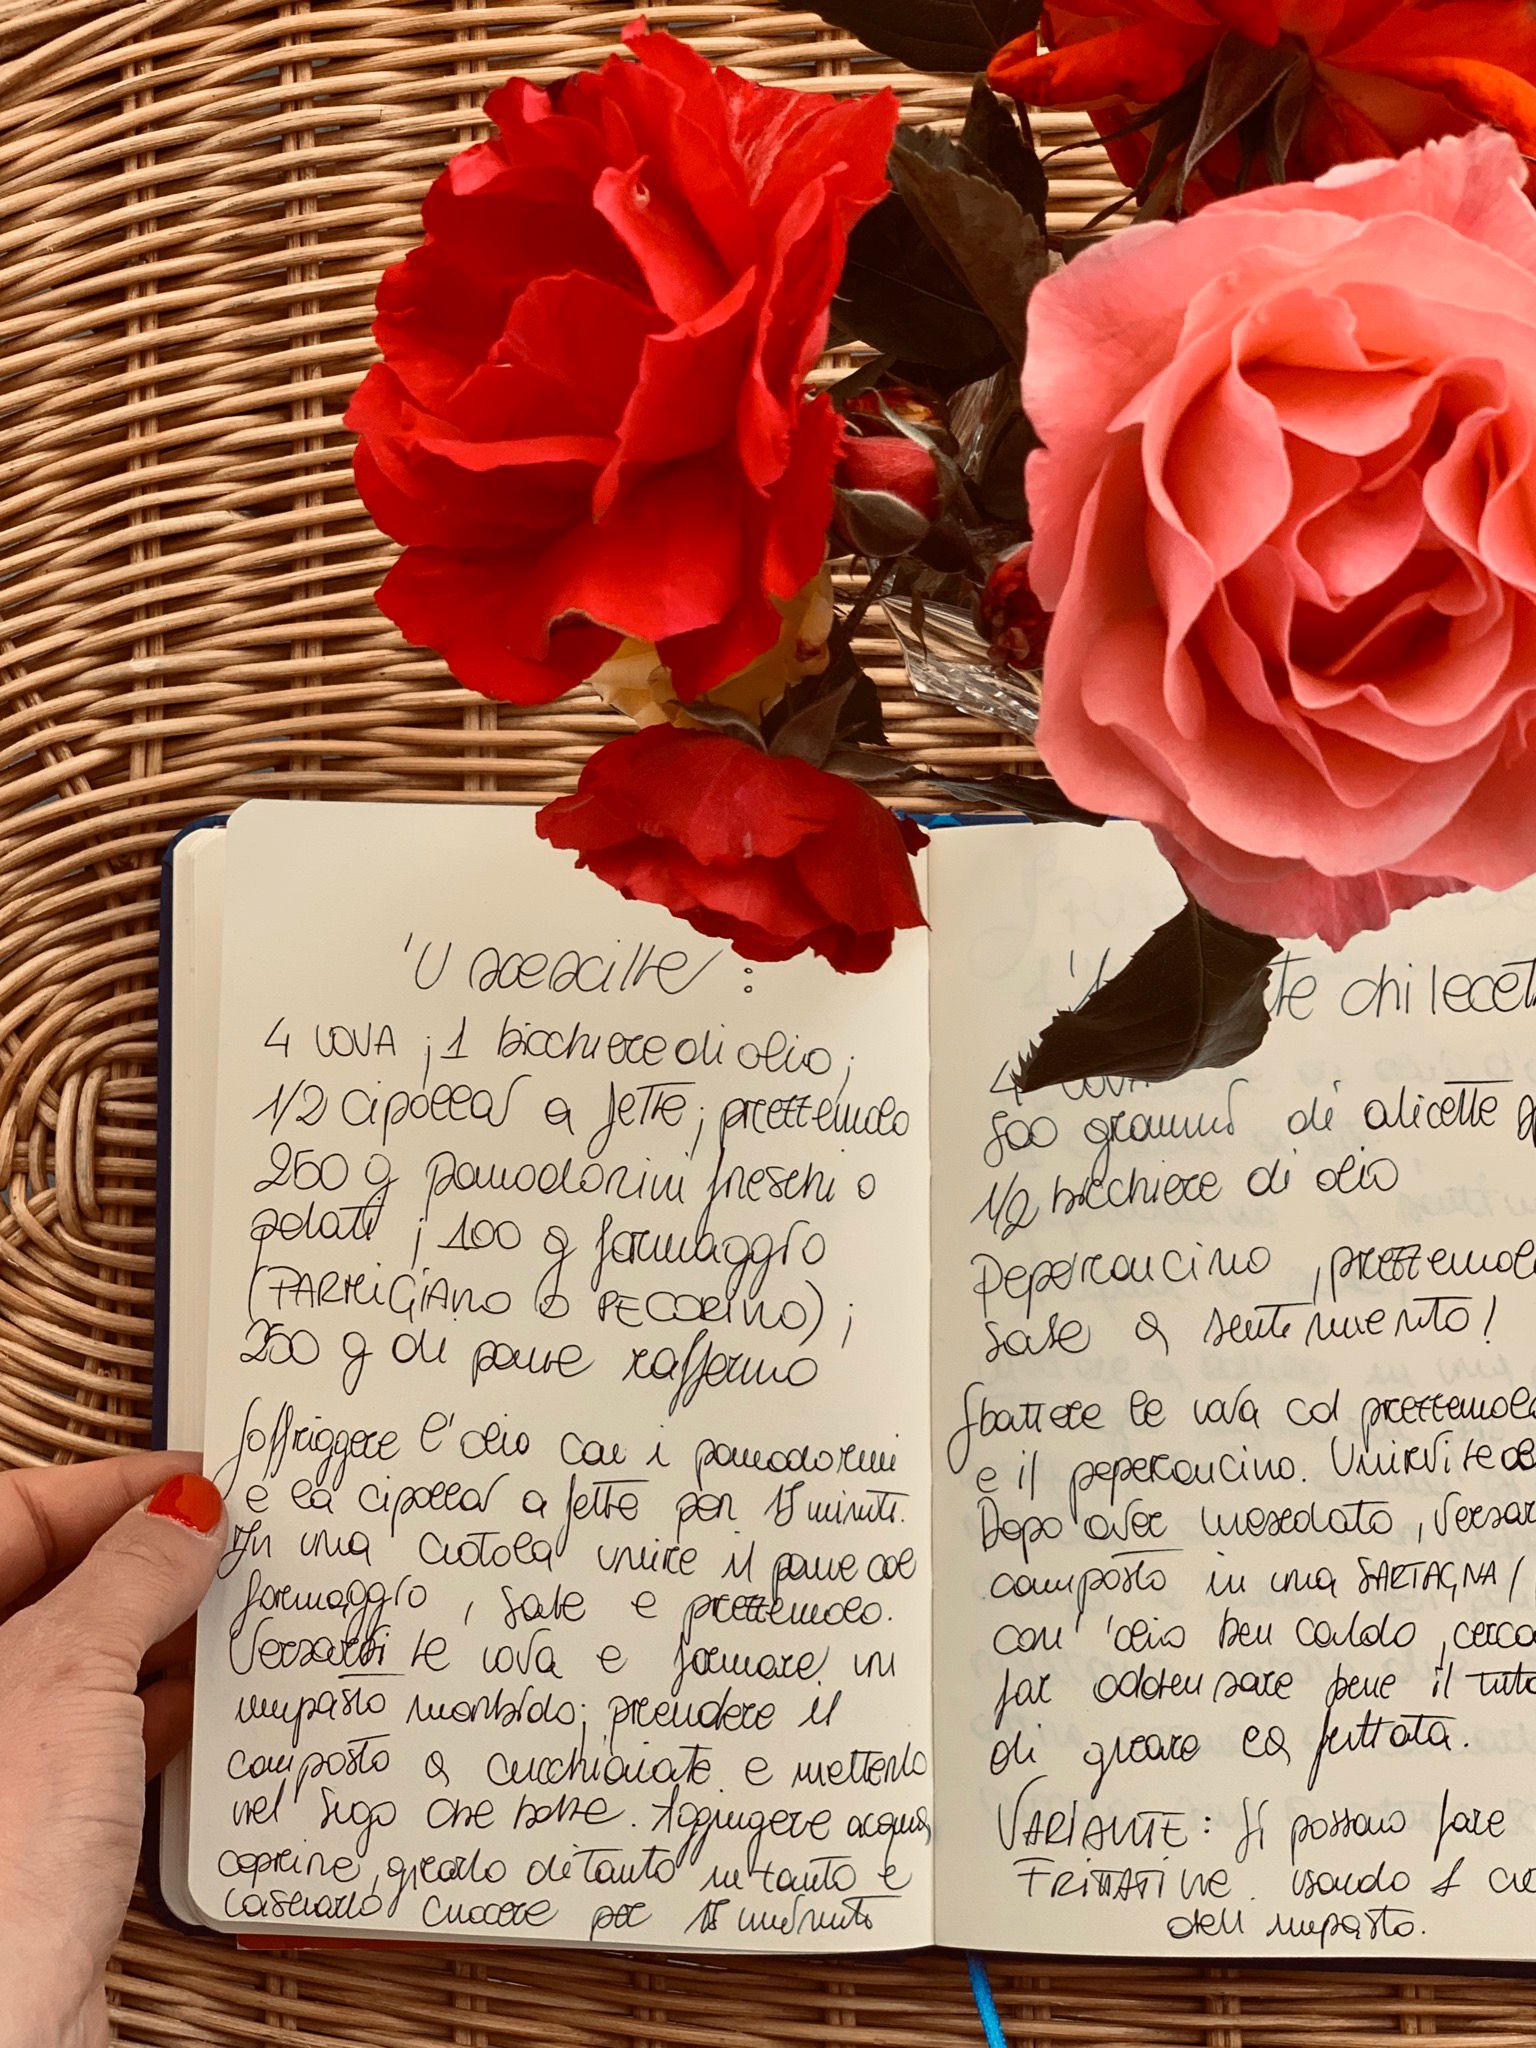 'U :
4 UOVA ; 1 bicchiere di olio ;
1/2 cipolla a fette ; prezzemolo
250 g pomodorini freschi o
pelati ; 100 g formaggio
(PARMIGIANO O PECORINO) ;
250 g di pane raffermo
Soffriggere l'olio con i pomodorini
e la cipolla a fette per 15 minuti.
In una ciotola unire il pane col
formaggio, sale e prezzemolo.
Versarvi le uova e formare un
impasto morbido; prendere il
composto a cucchiaiate e metterlo
nel sugo che bolle. Aggiungere acqua,
coprire, girarlo di tanto in tanto e
lasciarlo cuocere per 15 minuti
te chi
4 UOVA
500 grammi di alicette
1/2 bicchiere di olio
Peperoncino, prezzemol
Sale a sentimento!
Sbattere le uova col prezzemolo
e il peperoncino. Unirvi le
Dopo aver mescolato, versar
composto in una SARTAGNA/
con l'olio ben caldo, cerca
far addensare bene il tutto
di girare la frittata.
VARIANTE: Si possono fare
FRITTATINE usando 1 cuc
dell'impasto.